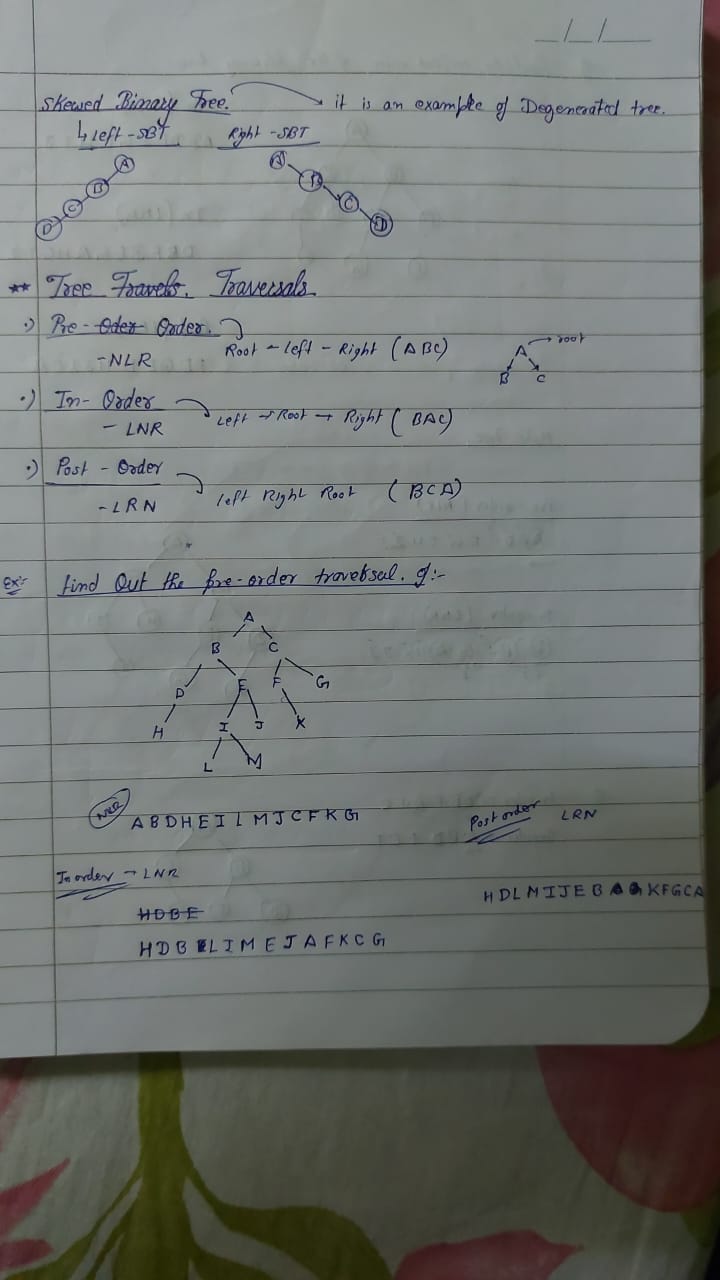 _/_/_
Skewed Binary Tree. → it is an example of Degenerated tree.
↳ Left-SBT Right-SBT
A A
B B
C C
D D
** Tree Travels. Traversals
:) Pre-Oder Order.
Root - Left - Right (ABC)
-NLR
A → root
B C
:) In-Order
Left → Root → Right (BAC)
- LNR
:) Post-Order
left Right Root (BCA)
-LRN
Ex:- find Out the pre-order traversal. of:-
A
B C
D E F G
H I J K
L M
NLR
ABDHEILMJCFKG
Post order LRN
In order → LNR
HDLMIJEB KFGCA
HDBE
HDBLIMEJAFKCG